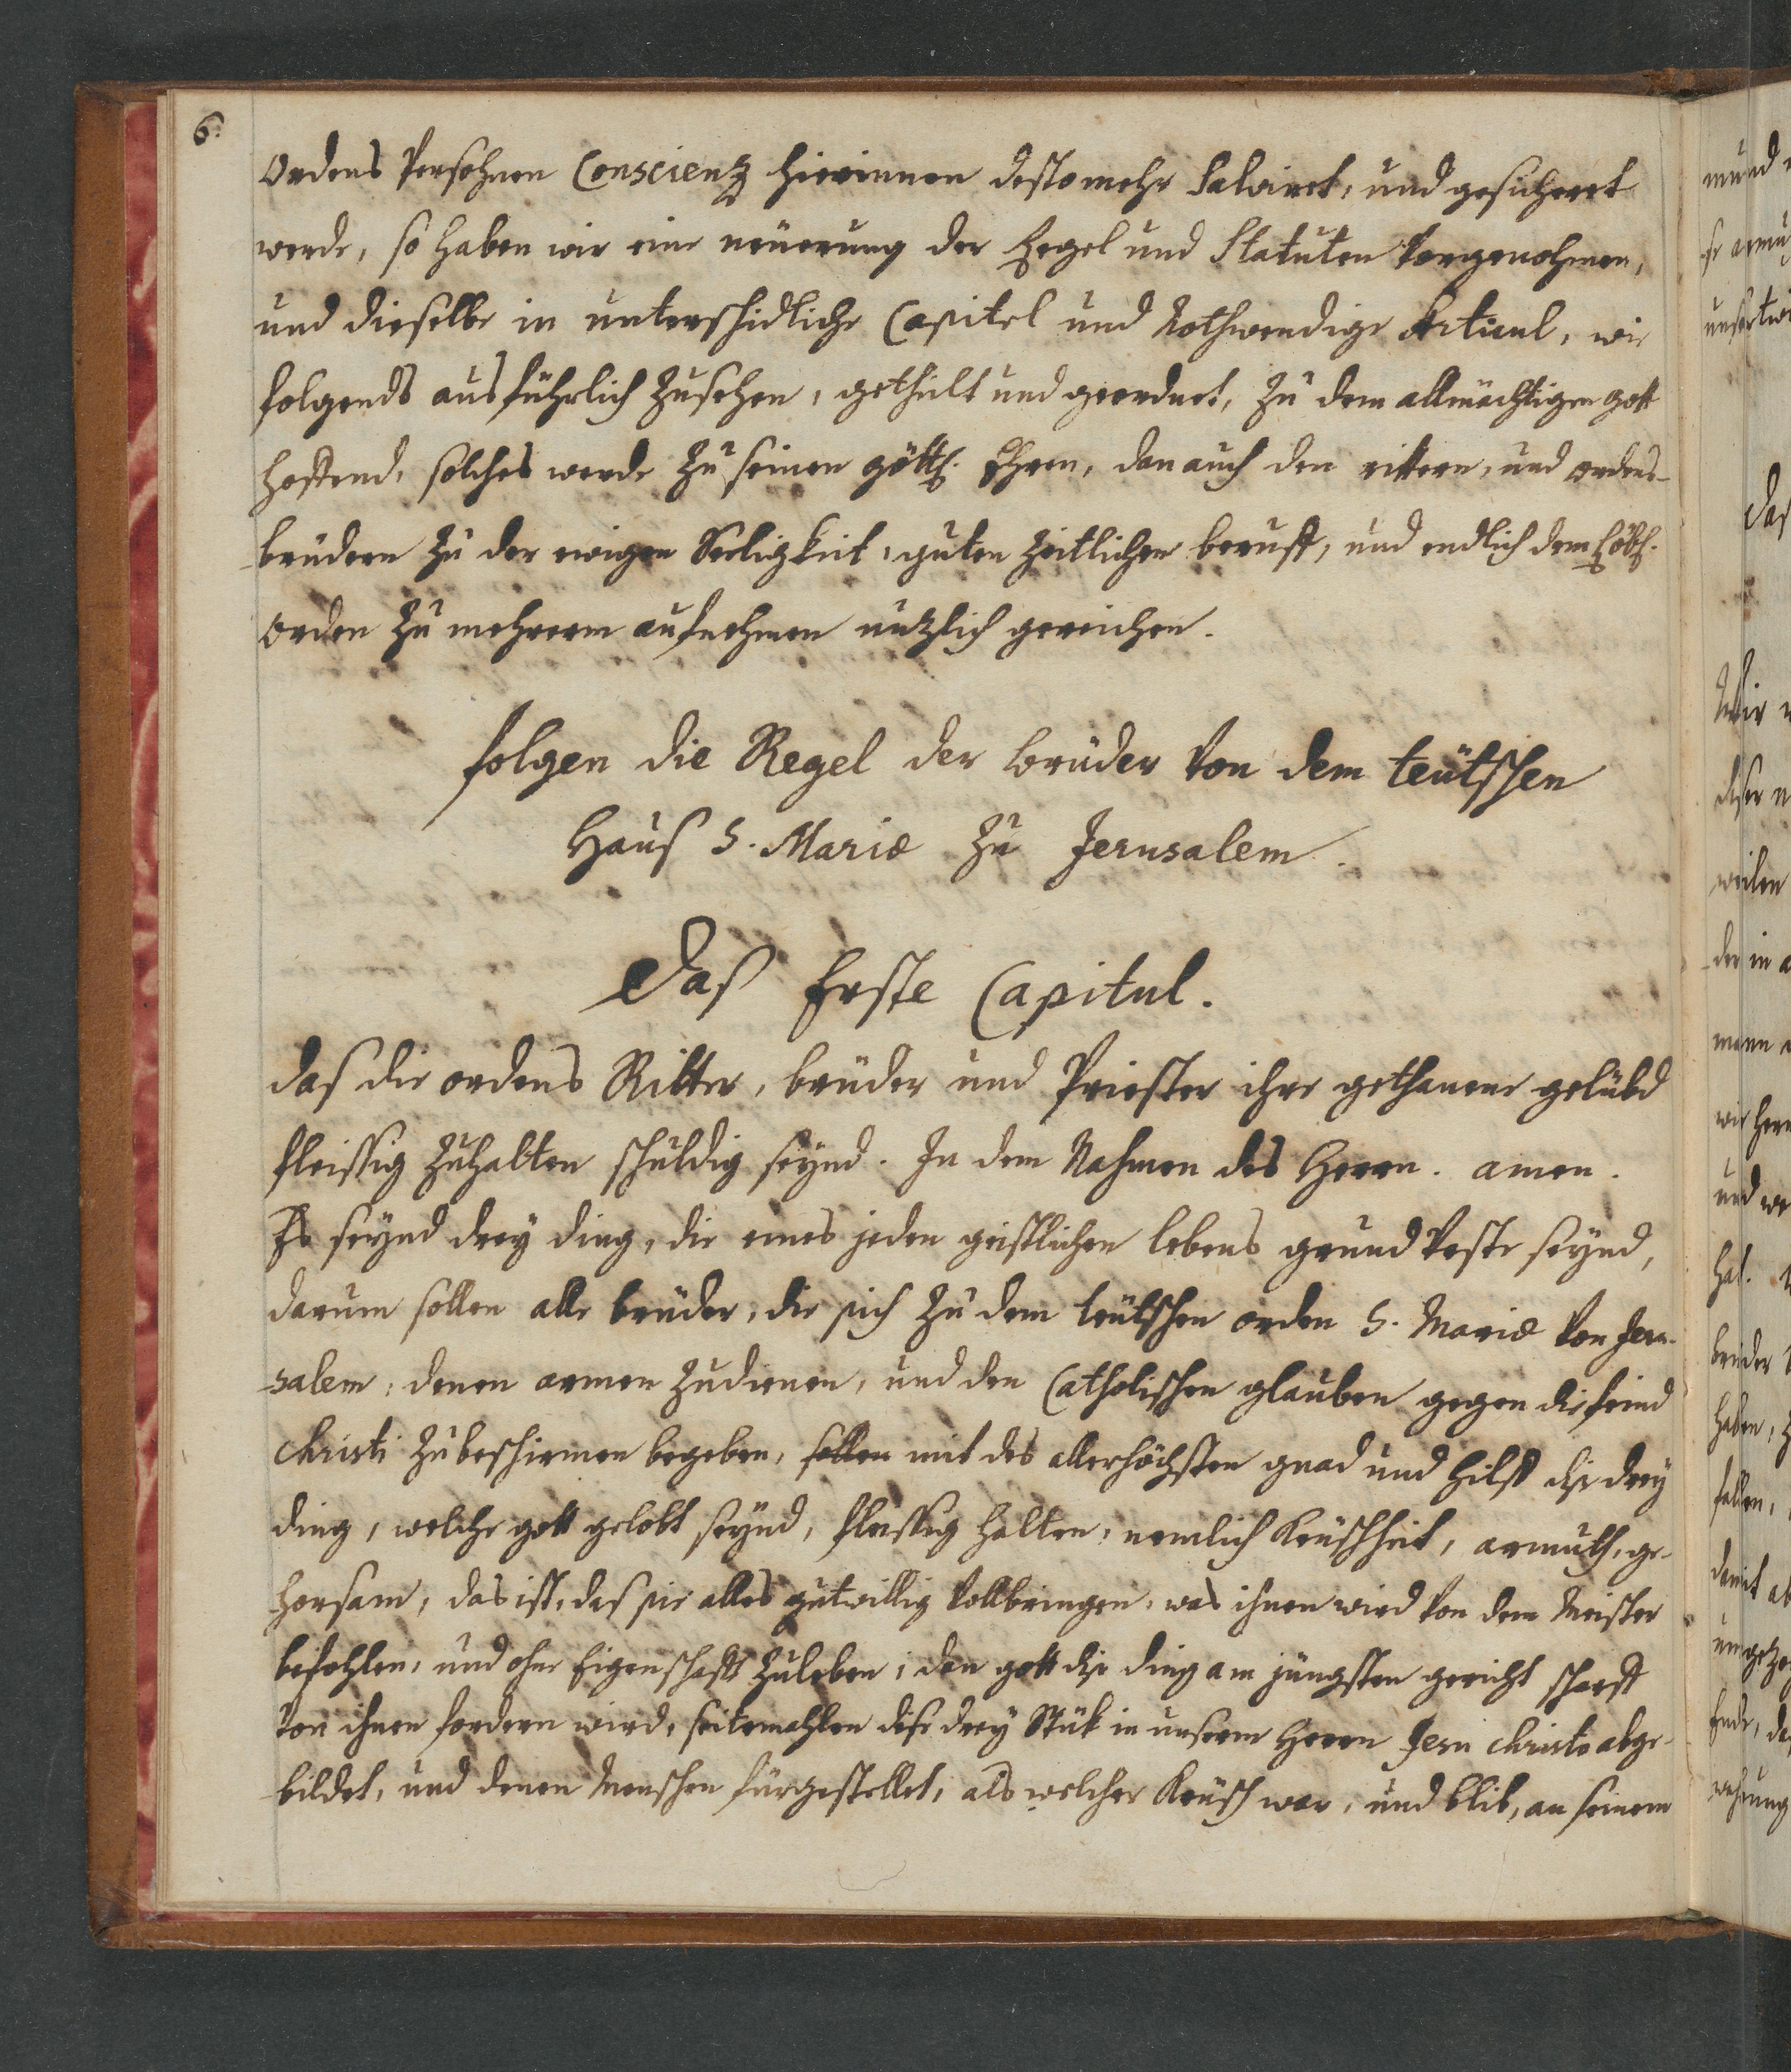 6.
ordens Persohnen Conscienz hierinnen destomehr Salvirt, und gesichert
werde, so haben wir eine neüerung der Regel und Statuten vorgenohmen,
und dieselbe in unterschidliche Capitel und Nothwendige Articul, wie
folgends ausführlich zusehen, getheilt und geordnet, zu dem allmächtigen gott
hoffend, solches werde zu seinen göttl. Ehren, dan auch den rittern, und ordens-
brüdern zu der ewigen Seeligkeit, guten zeitlichen beruff, und endlich dem Löbl.
orden zu mehrerm aufnehmen nutzlich gereichen.
folgen die Regel der brüder von dem teütschen
Hauß S. Mariæ zu Jerusalem.
Das Erste Capitul.
das die ordens Ritter, brüder und Priester ihre gethanene gelübd
fleissig zuhalten schuldig seynd. In dem Nahmen des Herrn. amen.
Es seynd drey ding, die eines jeden geistlichen lebens grundveste seynd,
darum sollen alle brüder, die sich zu dem teütschen orden S. Mariæ von Jeru-
salem, denen armen zudienen, und den Catholischen glauben gegen die feind
Christi zubeschirmen begeben, sollen mit des allerhöchsten gnad und hilff dise drey
ding, welche gott gelobt seynd, fleissig halten, nemlich Keüschheit, armuth, ge-
horsam, das ist, das sie alles gutwillig vollbringen, was ihnen wird von dem Meister
befohlen, und ohne Eigenschafft zuleben; dan gott dise ding am jüngsten gericht scharff
von ihnen fordern wird, seitemahlen dise drey Stük in unserem Herrn Jesu Christo abge-
bildet, und denen Menschen fürgestellet, als welcher Keüsch war, und blib, an seinem